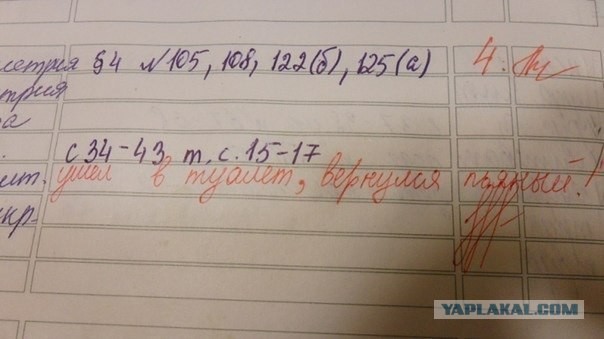 етрия §4 №105, 108, 122(б), 125(а) 4.
трия
а
с 34-43 т, с. 15-17
ит. ушел в туалет, вернулся пьяный!
кр-
YAPLAKAL.COM